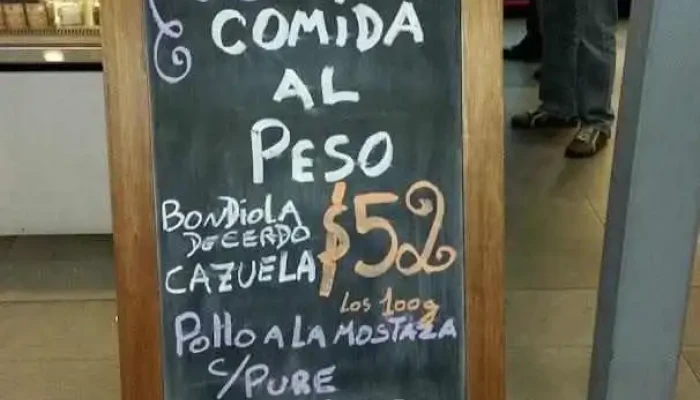 COMIDA
AL
PESO
BONDIOLA
DE CERDO
CAZUELA
$52
Los 100g
Pollo A LA MOSTAZA
C/PURE